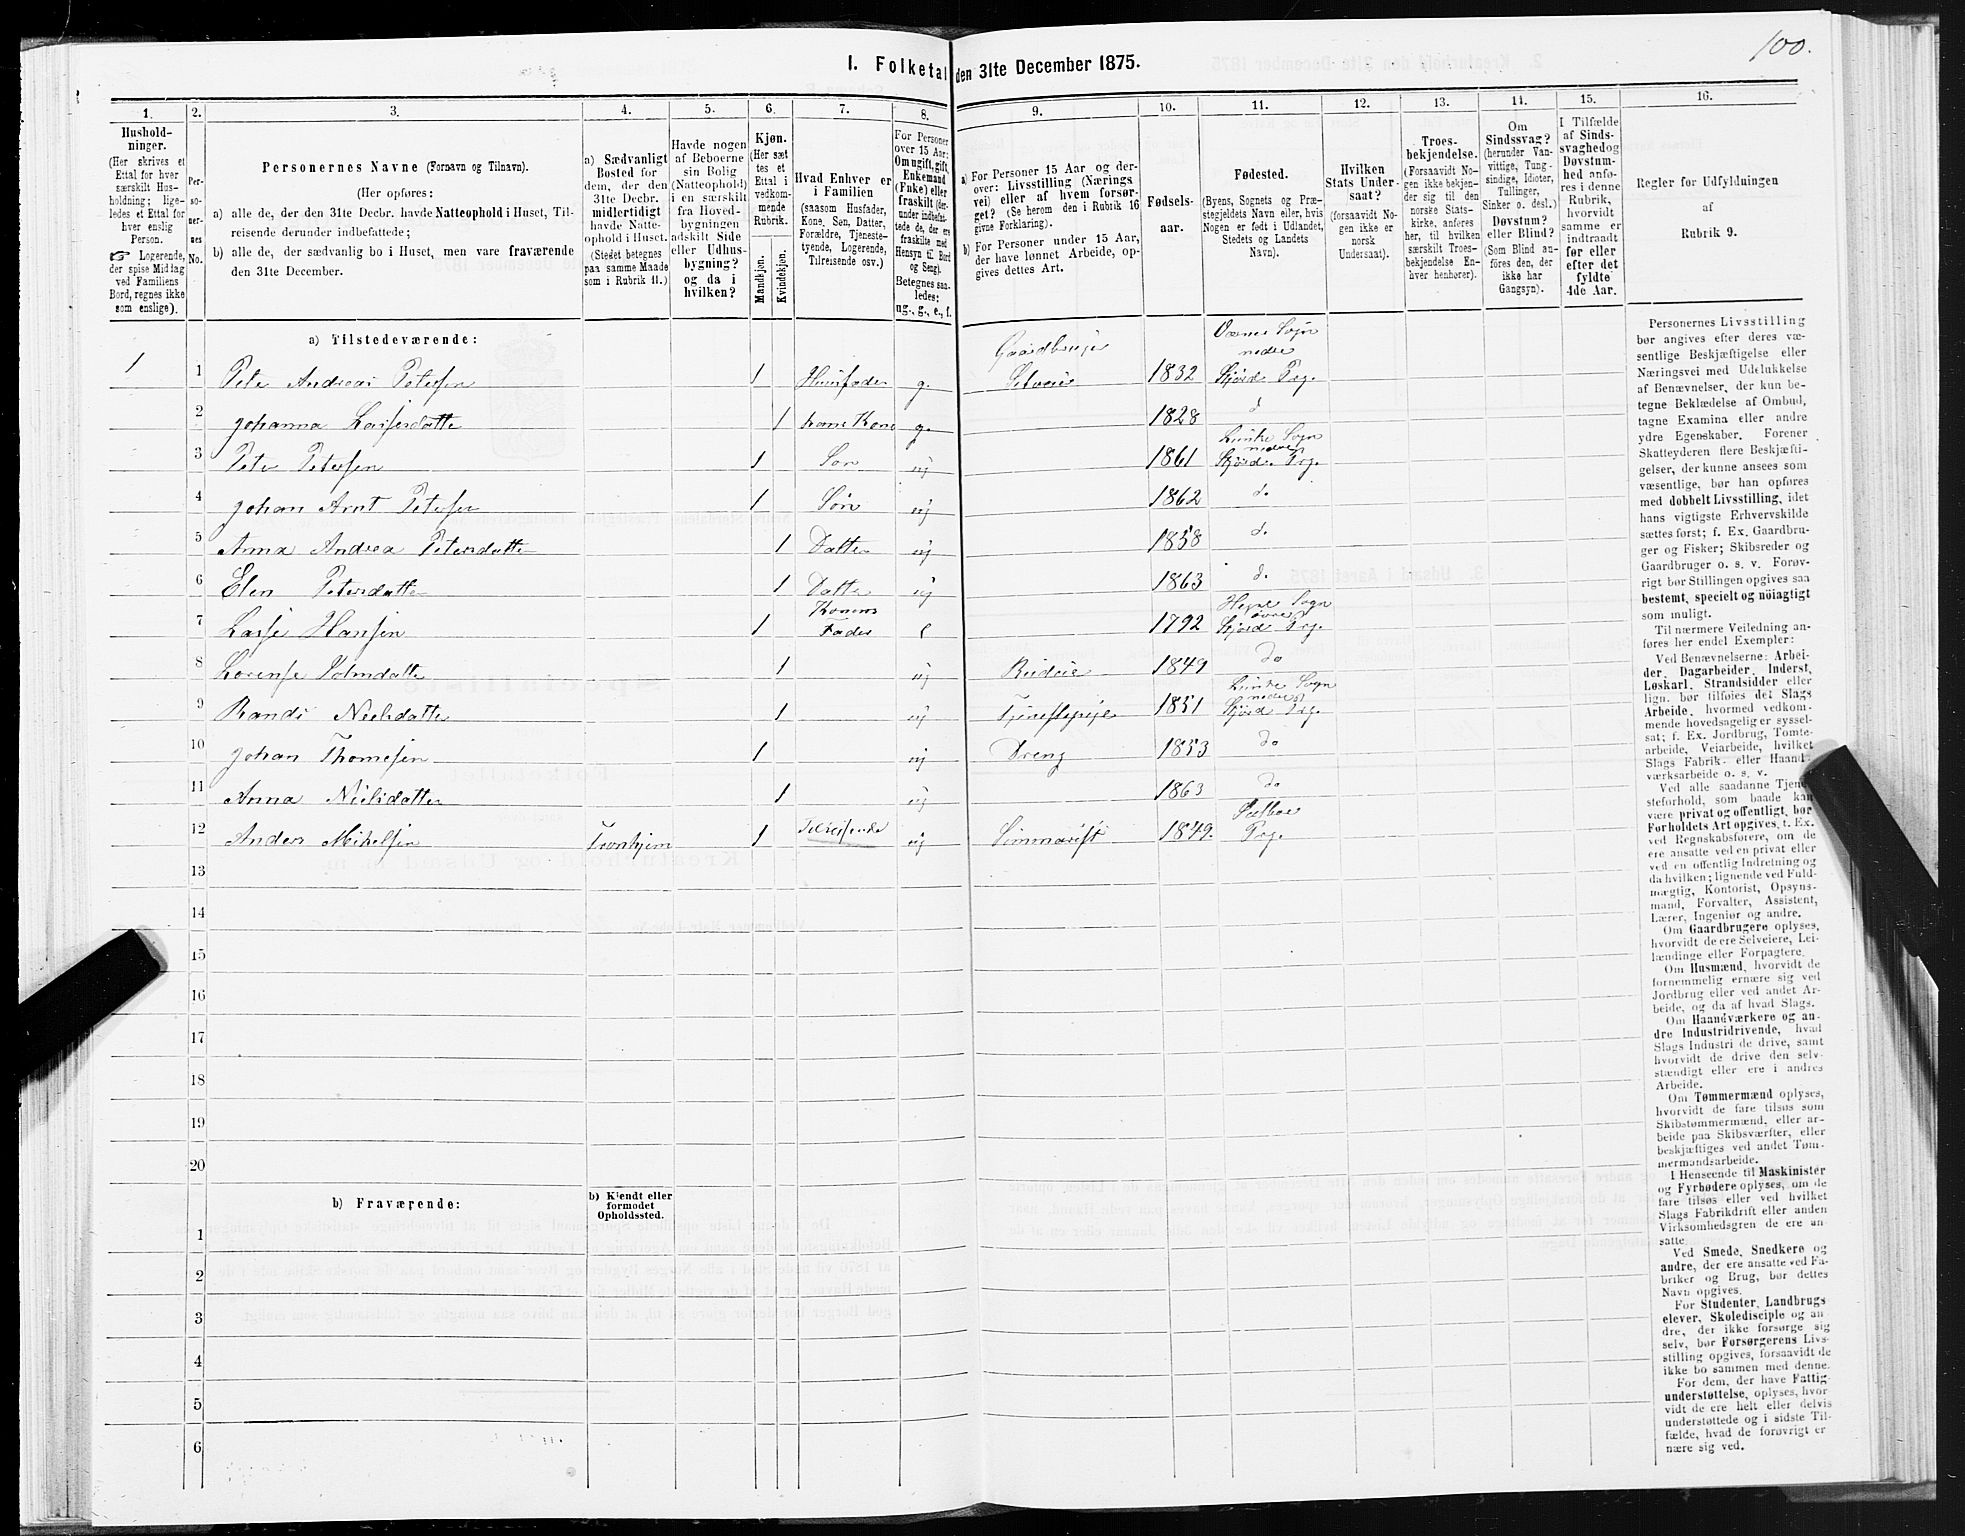 100.
I. Folketal den 31te December 1875.
1. 2. 3. 4. 5. 6. 7. 8. 9. 10. 11. 12. 13. 14. 15. 16.
Hushold-
ninger.
(Her skrives et
Ettal for hver
særskilt Hus-
holdning; lige-
ledes et Ettal for
hver enslig
Person.
☞ Logerende,
der spise Middag
ved Familiens
Bord, regnes ikke
som enslige).
Per-
so-
ner-
nes
No.
Personernes Navne (Fornavn og Tilnavn).
(Her opføres:
a) alle de, der den 31te Decbr. havde Natteophold i Huset, Til-
reisende derunder indbefattede;
b) alle de, der sædvanlig bo i Huset, men vare fraværende
den 31te December.
a) Sædvanligt
Bosted for
dem, der den
31te Decbr.
midlertidigt
havde Natte-
ophold i Huset.
(Stedet betegnes
paa samme Maade
som i Rubrik 11.)
Havde nogen
af Beboerne
sin Bolig
(Natteophold)
i en særskilt
fra Hoved-
bygningen
adskilt Side
eller Udhus-
bygning?
og da i
hvilken?
Kjøn.
(Her sæt
tes et
Ettal i
vedkom-
mende
Rubrik.
Mandkjøn.
Kvindekjøn.
Hvad Enhver er
i Familien
(saasom Husfader,
Kone, Søn, Datter,
Forældre, Tjeneste-
tyende, Logerende,
Tilreisende osv.)
For Personer
over 15 Aar:
Om ugift, gift,
Enkemand
(Enke) eller
fraskilt (der-
under indbefat-
tede de, der ere
fraskilte med
Hensyn til Bord
og Seng).
Betegnes saa-
ledes:
ug., g., e., f.
a) For Personer 15 Aar og der-
over: Livsstilling (Nærings
vei) eller af hvem forsør-
get? (Se herom den i Rubrik 16
givne Forklaring).
b) For Personer under 15 Aar,
der have lønnet Arbeide, op-
gives dettes Art.
Fødsels-
aar.
Fødested.
(Byens, Sognets og Præ-
stegjeldets Navn eller, hvis
Nogen er født i Udlandet,
Stedets og Landets
Navn).
Hvilken
Stats Under-
saat?
(forsaavidt No-
gen ikke er
norsk
Undersaat).
Troes-
bekjendelse.
(Forsaavidt No-
gen ikke bekjen-
der sig til den
norske Stats-
kirke, anføres
her, til hvilken
særskilt Troes-
bekjendelse En-
hver henhører).
Om
Sindssvag?
(herunder Van-
vittige, Tung-
sindige, Idioter,
Tullinger,
Sinker o. desl.)
Døvstum?
eller Blind?
(Som Blind an-
føres den, der
ikke har
Gangsyn).
I Tilfælde
af Sinds-
svaghed og
Døvstum-
hed anfø-
res i denne
Rubrik,
hvorvidt
samme er
indtraadt
før eller
efter det
fyldte
4de Aar.
Regler for Udfyldningen
af
Rubrik 9.
a) Tilstedeværende:
1 1 Peter Andreas Petersen 1 Huusfader g. Gaardbruger Selveier 1832 Værnes Sogn nedre Stjørd. Prg.
2 Johanna Lassesdatter 1 hans Kone g. 1828 d
3 Peter Petersen 1 Søn uj 1861 Lånke Sogn nedre Stjørd. Prg.
4 Johan Arnt Petersen 1 Søn uj 1862 d.
5 Anna Andrea Petersdatter 1 Datter uj 1858 d.
6 Elen Petersdatter 1 Datter uj 1863 d.
7 Lasse Hansen 1 Konens Fader e 1792 Hegre Sogn øvre Stjørd. Prg.
8 Lorense 1 uj Budeie 1849 do
9 Randi Nielsdatter 1 uj Tjenestepige 1851 Lånke Sogn nedre Stjørd Prg.
10 Johan Thomesen 1 uj Dreng 1853 do
11 Anna Nielsdatter 1 uj 1863 do
12 Anders Mikelsen Tronhjem 1 Tilreisende uj 1849. Selboe Prg.
13
14
15
16
17
18
19
20
b) Fraværende:
b) Kjendt eller
formodet
Opholdssted.
1
2
3
4
5
6
Personernes Livsstilling
bør angives efter deres væ-
sentlige Beskjæftigelse eller
Næringsvei med Udelukkelse
af Benævnelser, der kun be-
tegne Beklædelse af Ombud,
tagne Examina eller andre
ydre Egenskaber. Forener
Skatteyderen flere Beskjæfti-
gelser, der kunne ansees som
væsentlige, bør han opføres
med dobbelt Livsstilling, idet
hans vigtigste Erhvervskilde
sættes først; f. Ex. Gaardbru-
ger og Fisker; Skibsreder og
Gaardbruger o. s. v. Forøv-
rigt bør Stillingen opgives saa
bestemt, specielt og nöiagtigt
som muligt.
Til nærmere Veiledning an-
føres her endel Exempler:
Ved Benævnelserne: Arbei-
der, Dagarbeider, Inderst,
Løskarl, Strandsidder eller
lign. bør tilføies det Slags
Arbeide, hvormed vedkom-
mende hovedsagelig er syssel-
sat; f. Ex. Jordbrug, Tomte-
arbeide, Veiarbeide, hvilket
Slags Fabrik- eller Haand-
værksarbeide o. s. v.
Ved alle saadanne Tjene-
steforhold, som baade kan
være privat og offentligt, bør
Forholdets Art opgives, f. Ex.
ved Regnskabsførere, om de
ere ansatte ved en privat eller
ved en offentlig Indretning og
da hvilken; lignende ved Fuld-
mægtig, Kontorist, Opsyns-
mand, Forvalter, Assistent,
Lærer, Ingeniør og andre.
Om Gaardbrugere oplyses,
hvorvidt de ere Selveiere, Lei-
lændinge eller Forpagtere.
Om Husmænd, hvorvidt de
fornemmelig ernære sig ved
Jordbrug eller ved andet Ar-
beide, og da af hvad Slags.
Om Haandværkere og an-
dre Industridrivende, hvad
Slags Industri de drive, samt
hvorvidt de drive den selv-
stændigt eller ere i andres
Arbeide.
Om Tømmermænd oplyses,
hvorvidt de fare tilsøs som
Skibstømmermænd, eller ar-
beide paa Skibsværfter, eller
beskjæftiges ved andet Tøm-
mermandsarbeide.
I Henseende til Maskinister
og Fyrbødere oplyses, om de
fare tilsøs eller ved hvilket
Slags Fabrikdrift eller anden
Virksomhedsgren de ere an-
satte.
Ved Smede, Snedkere og
andre, der ere ansatte ved Fa-
briker og Brug, bør dettes
Navn opgives.
For Studenter, Landbrugs
elever, Skoledisciple og an-
dre, der ikke forsørge sig
selv, bør Forsørgerens Livs-
stilling opgives, forsaavidt de
ikke bo sammen med denne.
For dem, der have Fattig-
understøttelse, oplyses, hvor
vidt de ere helt eller delvis
understøttede og i sidste Til-
fælde, hvad de forøvrigt er
nære sig ved.